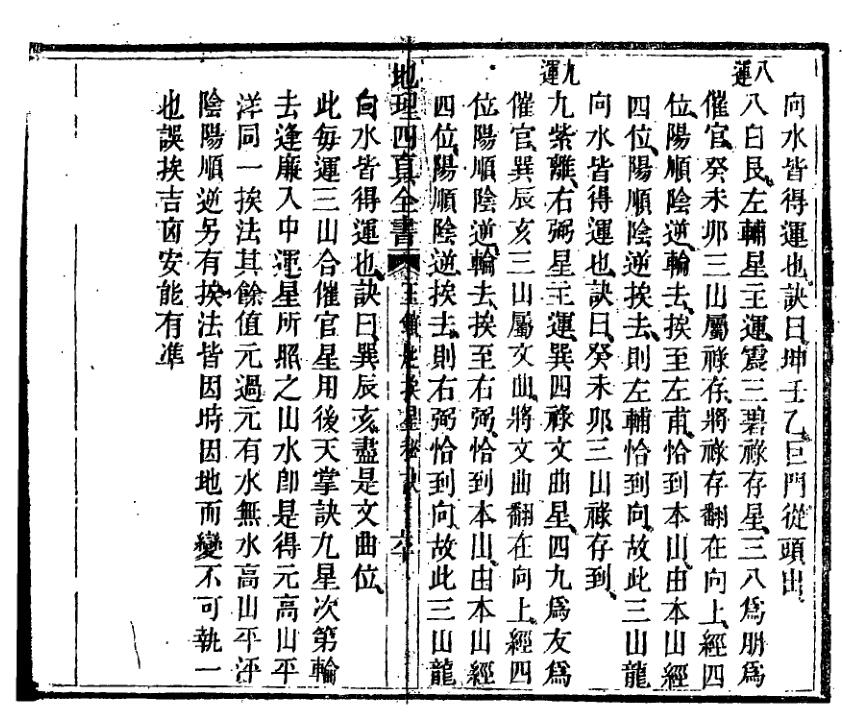 向水皆得運也訣曰坤壬乙巨門從頭出
八運
八白艮左輔星主運震三碧祿存星三八為朋為
催官癸未卯三山屬祿存將祿存翻在向上經四
位陽順陰逆輪去挨至左甫恰到本山由本山經
四位陽順陰逆挨去則左輔恰到向故此三山龍
向水皆得運也訣曰癸未卯三山祿存到
九運
九紫離右弼星主運巽四祿文曲星四九為友為
催官巽辰亥三山屬文曲將文曲翻在向上經四
位陽順陰逆輪去挨至右弼恰到本山由本山經
四位陽順陰逆挨去則右弼恰到向故此三山龍
地理四真全書
六十
向水皆得運也訣曰巽辰亥盡是文曲位
此每運三山合催官星用後天掌訣九星次第輪
去逢廉入中運星所照之山水卽是得元高山平
洋同一挨法其餘值元過元有水無水高山平洋
陰陽順逆另有挨法皆因時因地而變不可執一
也誤挨吉凶安能有準